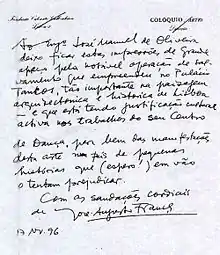 COLÓQUIO ARTES
Lisboa
Ao Eng.º José Manuel de Oliveira
deixo ficar estas impressões de grande
apreço pela notável operação de sal-
vamento que empreendeu no Palácio
Tancos, tão importante na paisagem
arquitectónica e histórica de Lisboa
— e que está tendo justificação cultural
activa nos trabalhos do seu Centro
de Dança, por bem das manifestações
desta arte num país de pequenas
histórias que (espero!) em vão
o tentam prejudicar.
Com as saudações cordiais
de José-Augusto França
17 Nv. 96